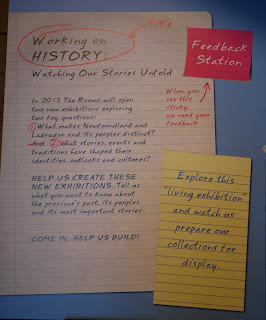 Title
Working on
HISTORY:
Watching Our Stories Unfold
In 2013 The Rooms will open
two new exhibitions exploring
two key questions:
① What makes Newfoundland and
Labrador and its peoples distinct?
And ② What stories, events and
traditions have shaped their
identities, outlooks and cultures?
HELP US CREATE THESE
NEW EXHIBITIONS. Tell us
what you want to know about
the province's past, its peoples
and its most important stories.
COME IN. HELP US BUILD!
Feedback
Station
When you
see this
sticky,
we need your
feedback
Explore this
"living exhibition"
and watch us
prepare our
collections for
display.